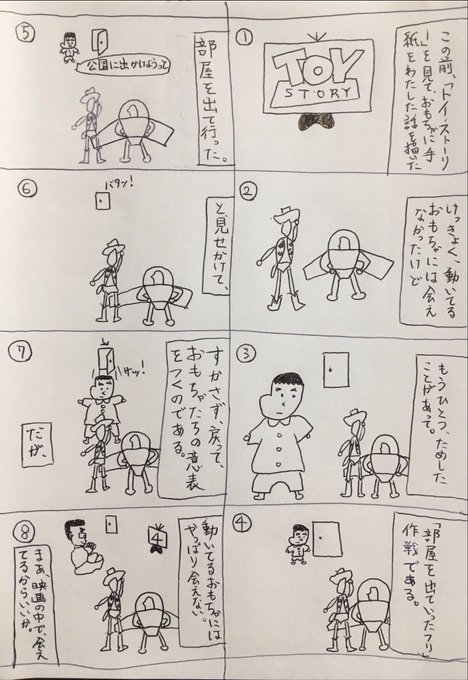 ①
この前、「トイ・ストーリ
ー」を見て、おもちゃに手
紙をわたした話を描いた
TOY
STORY
②
けっきょく、動いてる
おもちゃには会え
なかったけど
③
もうひとつ、ためした
ことがあって。
④
「部屋を出ていったフリ」
作戦である。
⑤
公園に出かけようって
部屋を出て行った。
⑥
バタン!
と、見せかけて、
⑦
すかさず戻って、
おもちゃたちの意表
をつくのである。
バッ!
だが、
⑧
動いてるおもちゃには
やっぱり会えない。
4
まあ、映画の中で、会え
てるからいいか。